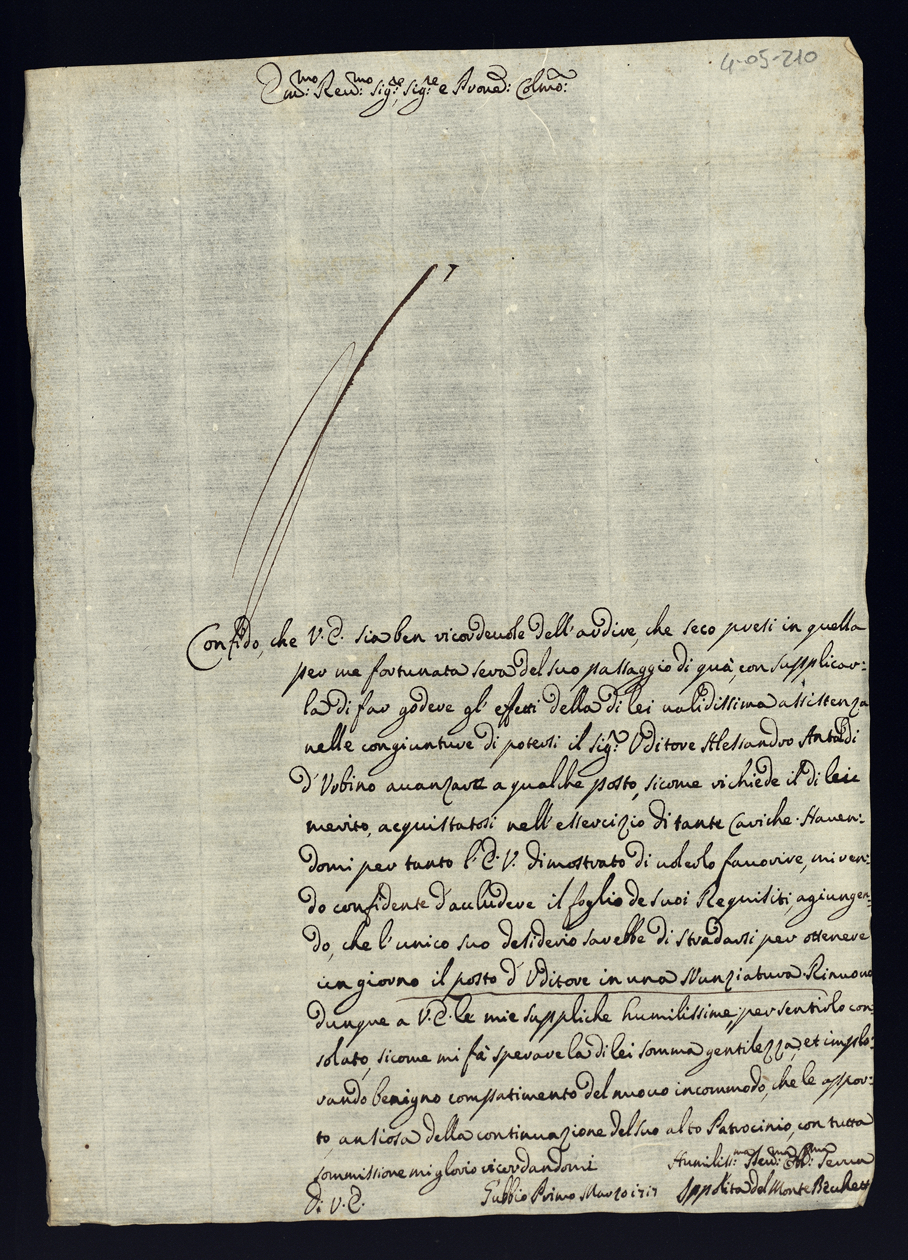 4-05-210
Em:mo Reu:mo Sig:re, Sig:re e Prone: Colmo:
Confido, che V.E. sia ben ricordeuole dell'ardire, che seco presi in quella
per me fortunata sera del suo passaggio di quà, con supplicar:
la di far godere gl'effetti della di lei ualidissima assistenza
nelle congiunture di potersi il Sig:r Vditore Alessandro Antaldi
d'Vrbino auanzare a qualche posto, sicome richiede il di lui
merito, acquistatosi nell'essercizio di tante Cariche. Hauen:
domi per tanto l'E.V. dimostrato di uolerlo fauorire, mi ren:
do confidente d'accludere il foglio de suoi Requisiti agiungen:
do, che l'unico suo desiderio sarebbe di stradarsi per ottenere
un giorno il posto d'Vditore in una Nunziatura. Rinuouo
dunque a V.E. le mie suppliche humilissime, per sentirlo con:
solato, sicome mi fà sperare la di lei somma gentilezza, et implo:
rando benigno compatimento del nuouo incommodo, che le appor:
to, ansiosa della continuazione del suo alto Patrocinio, con tutta
sommissione mi glorio ricordandomi
Humiliss:ma Deu:ma Serua
D: V.E.
Gubbio Primo Marzo 1717
Ippolita del Monte